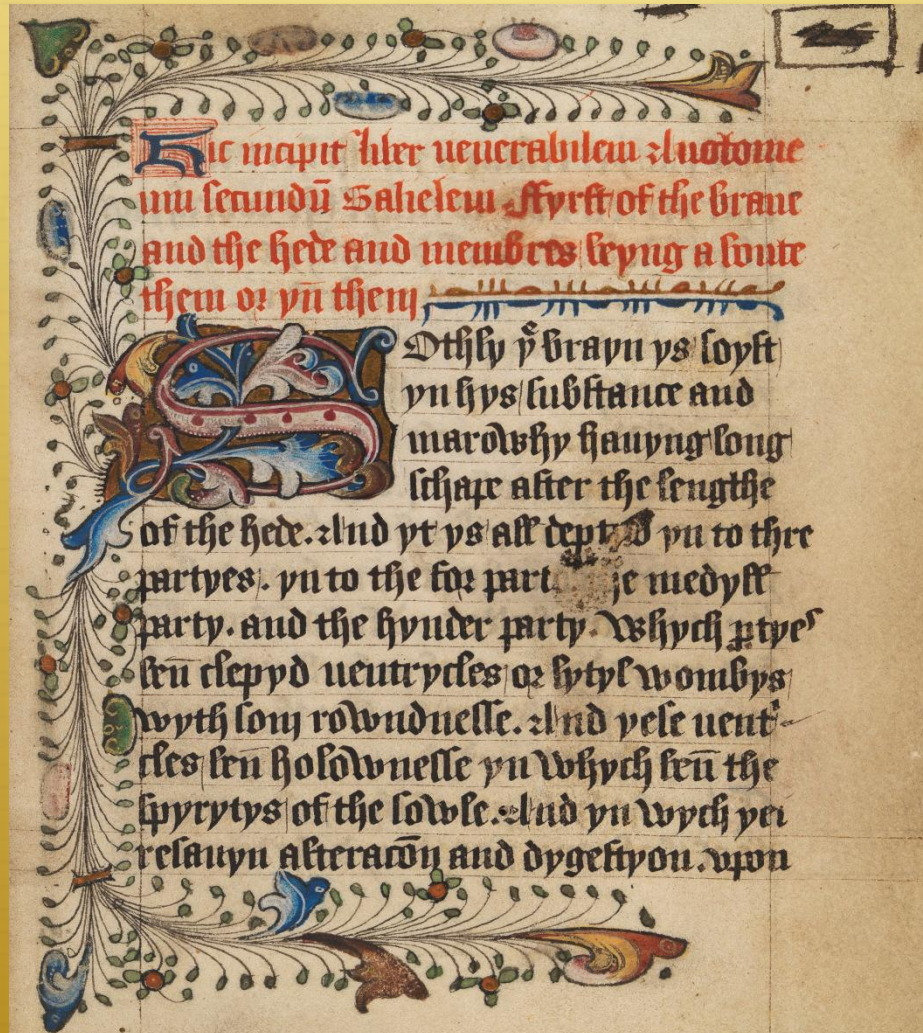 Hic incipit liber venerabilem Anotome
mu secundū Galielem ffyrst of the brane
and the hede and membres beyng a boute
them or yn̄ them
Sothly yͤ brayn ys soyft
yn hys substance and
marowhy hauyng long
schape after the lengthe
of the hede. And yt ys all yn to thre
partyes. yn to the for medyll
party. and the hynder party. Whych ꝑtyeˢ
ben̄ clepyd uentrycles or lytyl wombys
wyth som rowndnesse. And yese uentⁱ-
cles ben holownesse yn whych ben̄ the
spyrytys of the sowle. And yn wych yei
resauyn alteracōn and dygestyon. vpon